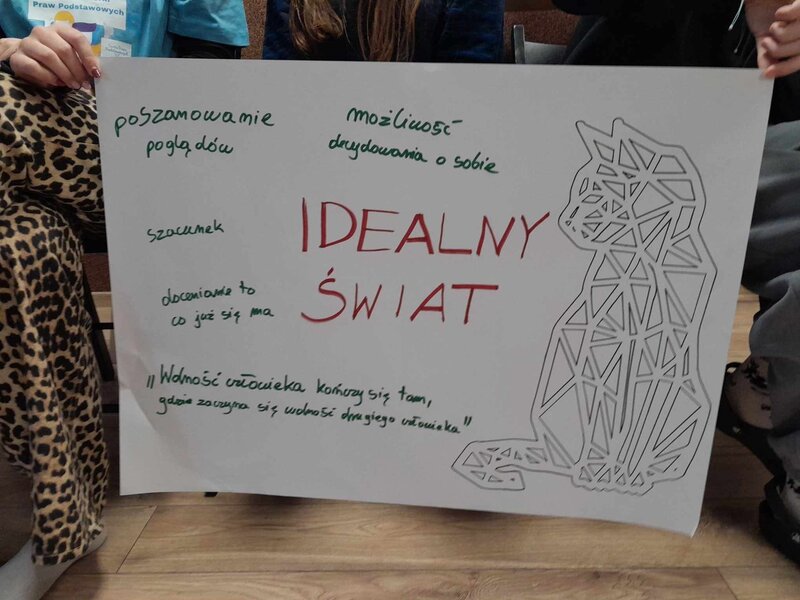 Praw Podstawowych
poszanowanie
poglądów
możliwość
decydowania o sobie
szacunek
IDEALNY
ŚWIAT
docenianie to
co już się ma
"Wolność człowieka kończy się tam,
gdzie zaczyna się wolność drugiego człowieka"